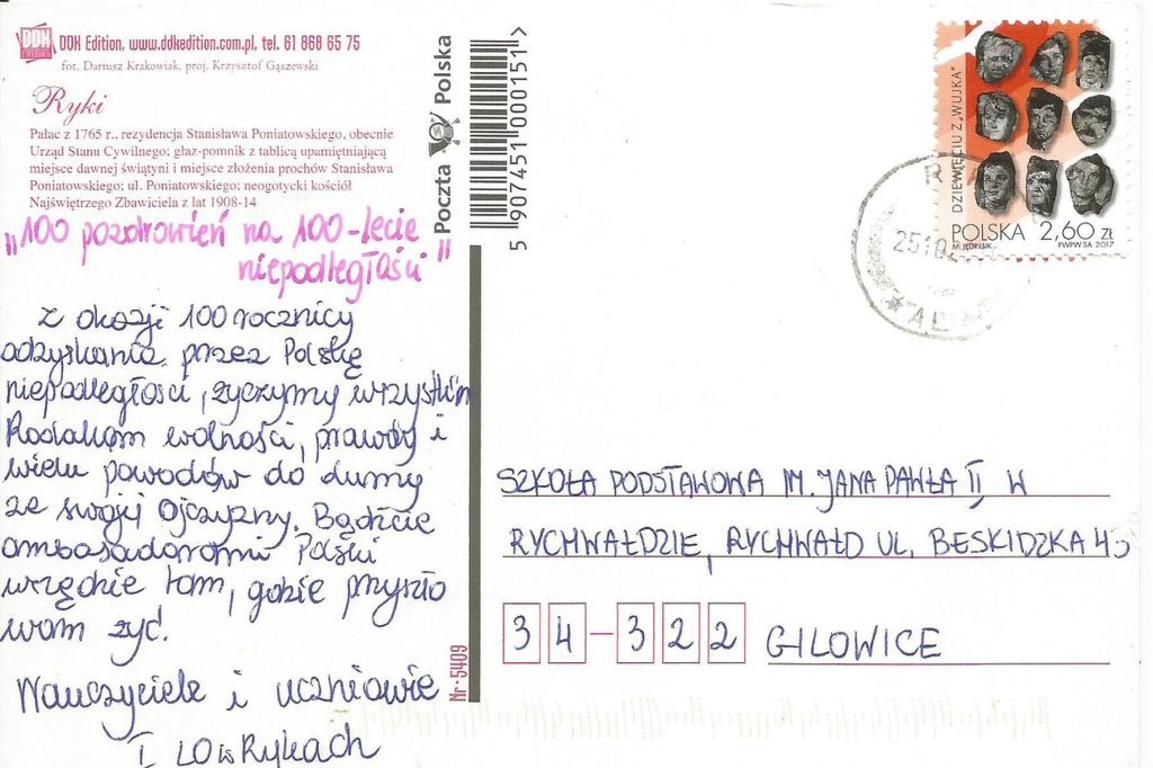 DDK Edition, www.ddkedition.com.pl, tel. 61 868 65 75
fot. Dariusz Krakowiak, proj. Krzysztof Gąszewski
Ryki
Pałac z 1765 r., rezydencja Stanisława Poniatowskiego, obecnie
Urząd Stanu Cywilnego; głaz-pomnik z tablicą upamiętniającą
miejsce dawnej świątyni i miejsce złożenia prochów Stanisława
Poniatowskiego; ul. Poniatowskiego; neogotycki kościół
Najświętrzego Zbawiciela z lat 1908-14
„100 pozdrowień na 100-lecie
niepodległości"
Z okazji 100 rocznicy
odzyskania przez Polskę
niepodległości, życzymy wszystkim
Rodakom wolności, prawdy i
wielu powodów do dumy
ze swojej Ojczyzny. Bądźcie
ambasadorami Polski
wszędzie tam, gdzie przyszło
wam żyć.
Nauczyciele i uczniowie
I LO w Rykach
Poczta Polska
5 907451 000151 >
Nr-5409
DZIEWIĘCIU Z „WUJKA"
POLSKA 2,60 zł
M. JĘDRYSIK PWPW SA 2017
SZKOŁA PODSTAWOWA IM. JANA PAWŁA II W
RYCHWAŁDZIE, RYCHWAŁD UL. BESKIDZKA 45
34-322 GILOWICE